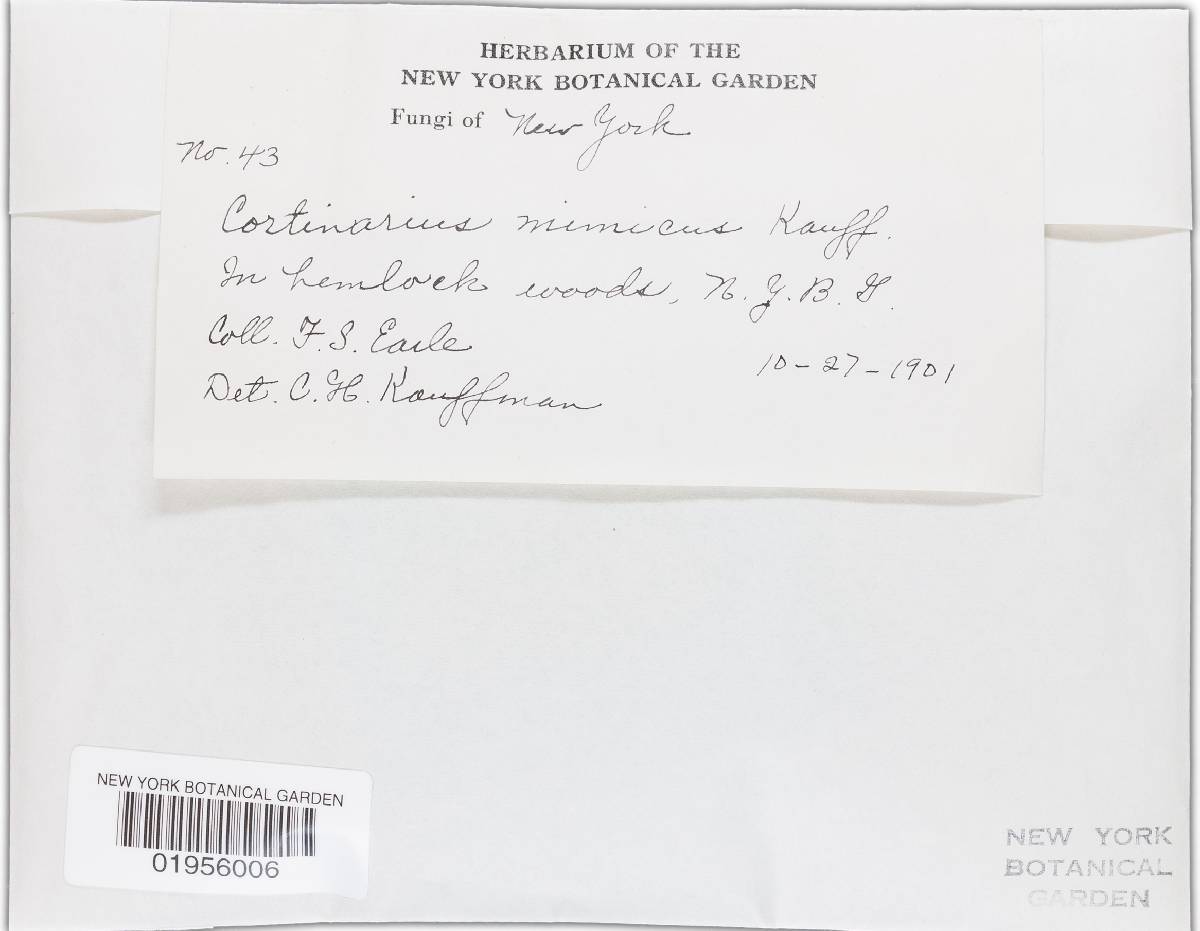 HERBARIUM OF THE
NEW YORK BOTANICAL GARDEN
Fungi of New York
No. 43
Cortinarius mimicus Kauff.
In hemlock woods, N. Y. B. G.
Coll. F. S. Earle
10-27-1901
Det. C. H. Kauffman
NEW YORK BOTANICAL GARDEN
01956006
NEW YORK
BOTANICAL
GARDEN